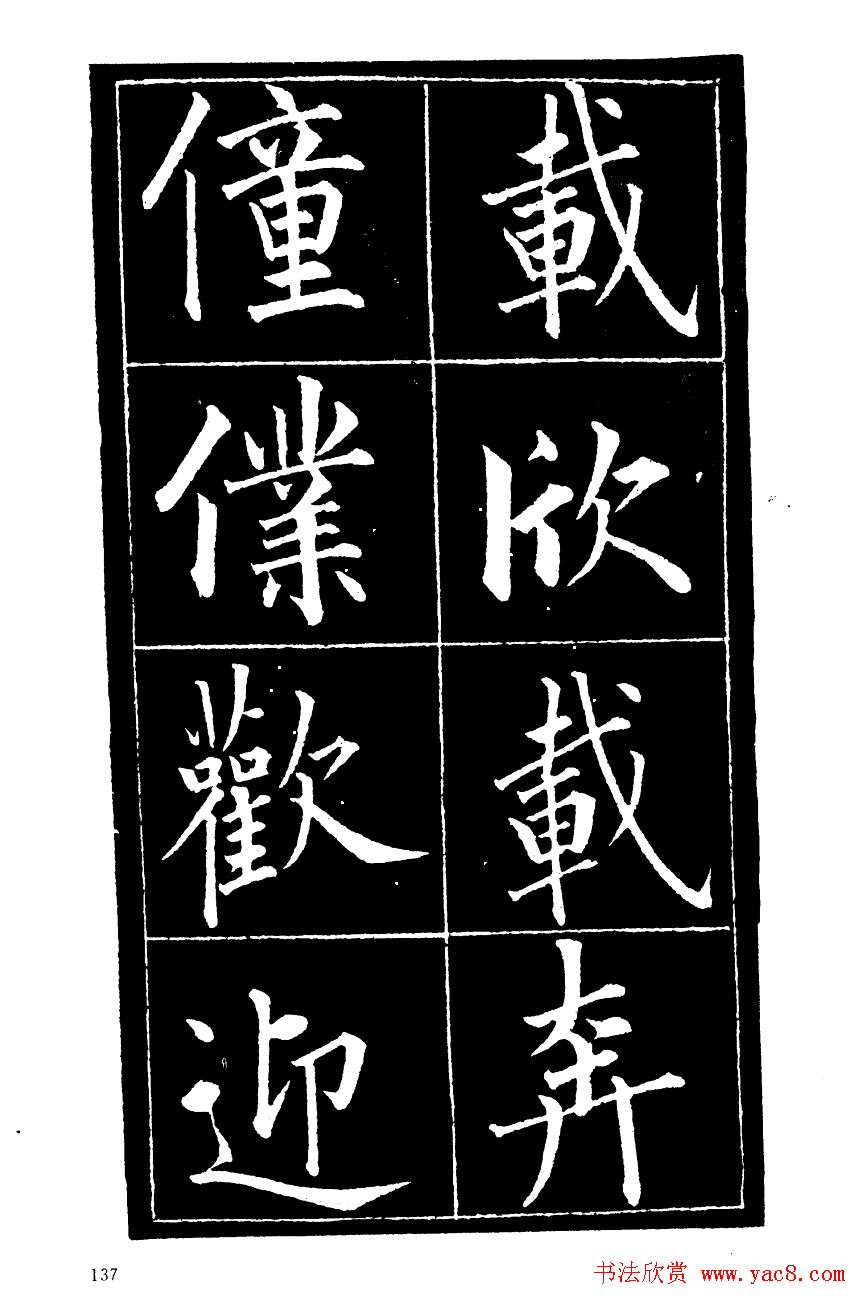 載欣載奔
僮僕歡迎
137
书法欣赏 www.yac8.com